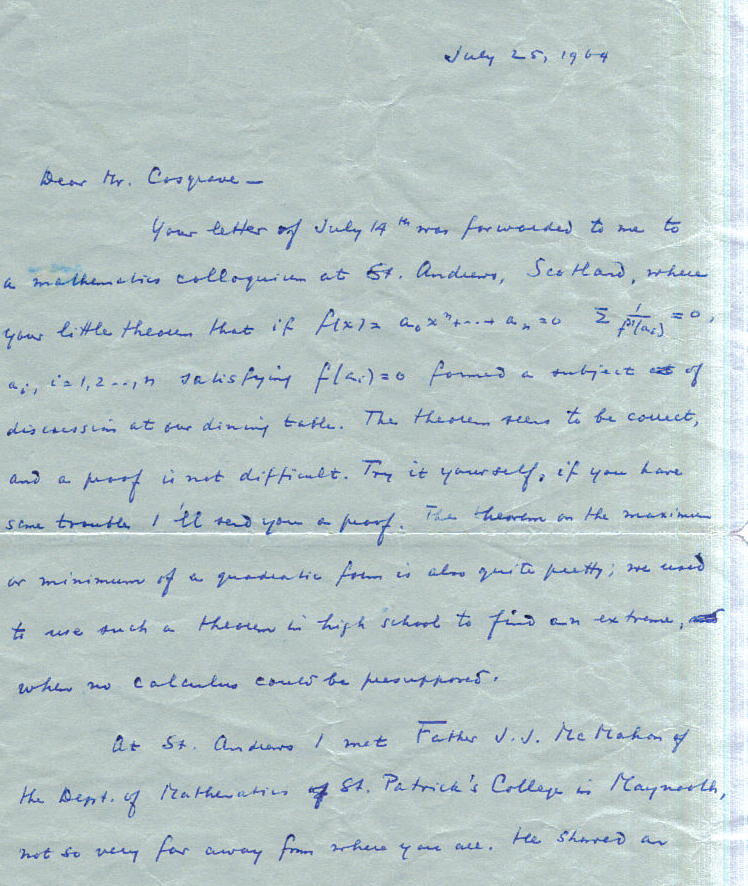 July 25, 1964
Dear Mr. Cosgrave —
Your letter of July 14th was forwarded to me to
a mathematics colloquium at St. Andrews, Scotland, where
your little theorem that if f(x) = a₀xⁿ+...+ aₙ = 0 Σ 1/f'(aᵢ) = 0,
aᵢ, i=1,2..., n satisfying f(aᵢ)=0 formed a subject of
discussion at our dining table. The theorem seems to be correct,
and a proof is not difficult. Try it yourself, if you have
some trouble I'll send you a proof. The theorem on the maximum
or minimum of a quadratic form is also quite pretty; we used
to use such a theorem in high school to find an extreme,
when no calculus could be presupposed.
At St. Andrews I met Father J.J. McMahon of
the Dept. of Mathematics of St. Patrick's College in Maynooth,
not so very far away from where you are. He shared an